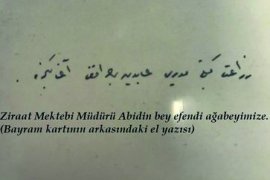 زراعت مكتبی مدیری عابدین بك افندی آغابكمزه
Ziraat Mektebi Müdürü Abidin bey efendi ağabeyimize.
(Bayram kartının arkasındaki el yazısı)